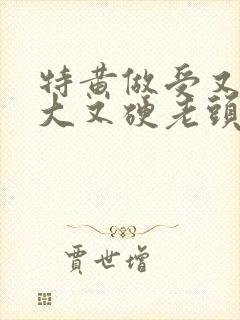 特黄做受又
大又硬老頭
賈世增